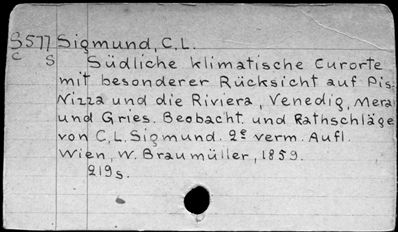 S577 Sigmund, C.L.
C S Südliche klimatische Curorte
mit besonderer Rücksicht auf Pis
Nizza und die Riviera, Venedig, Mera
und Gries. Beobacht. und Rathschläge
von C.L. Sigmund. 2e verm. Aufl.
Wien, W. Braumüller, 1859.
219s.